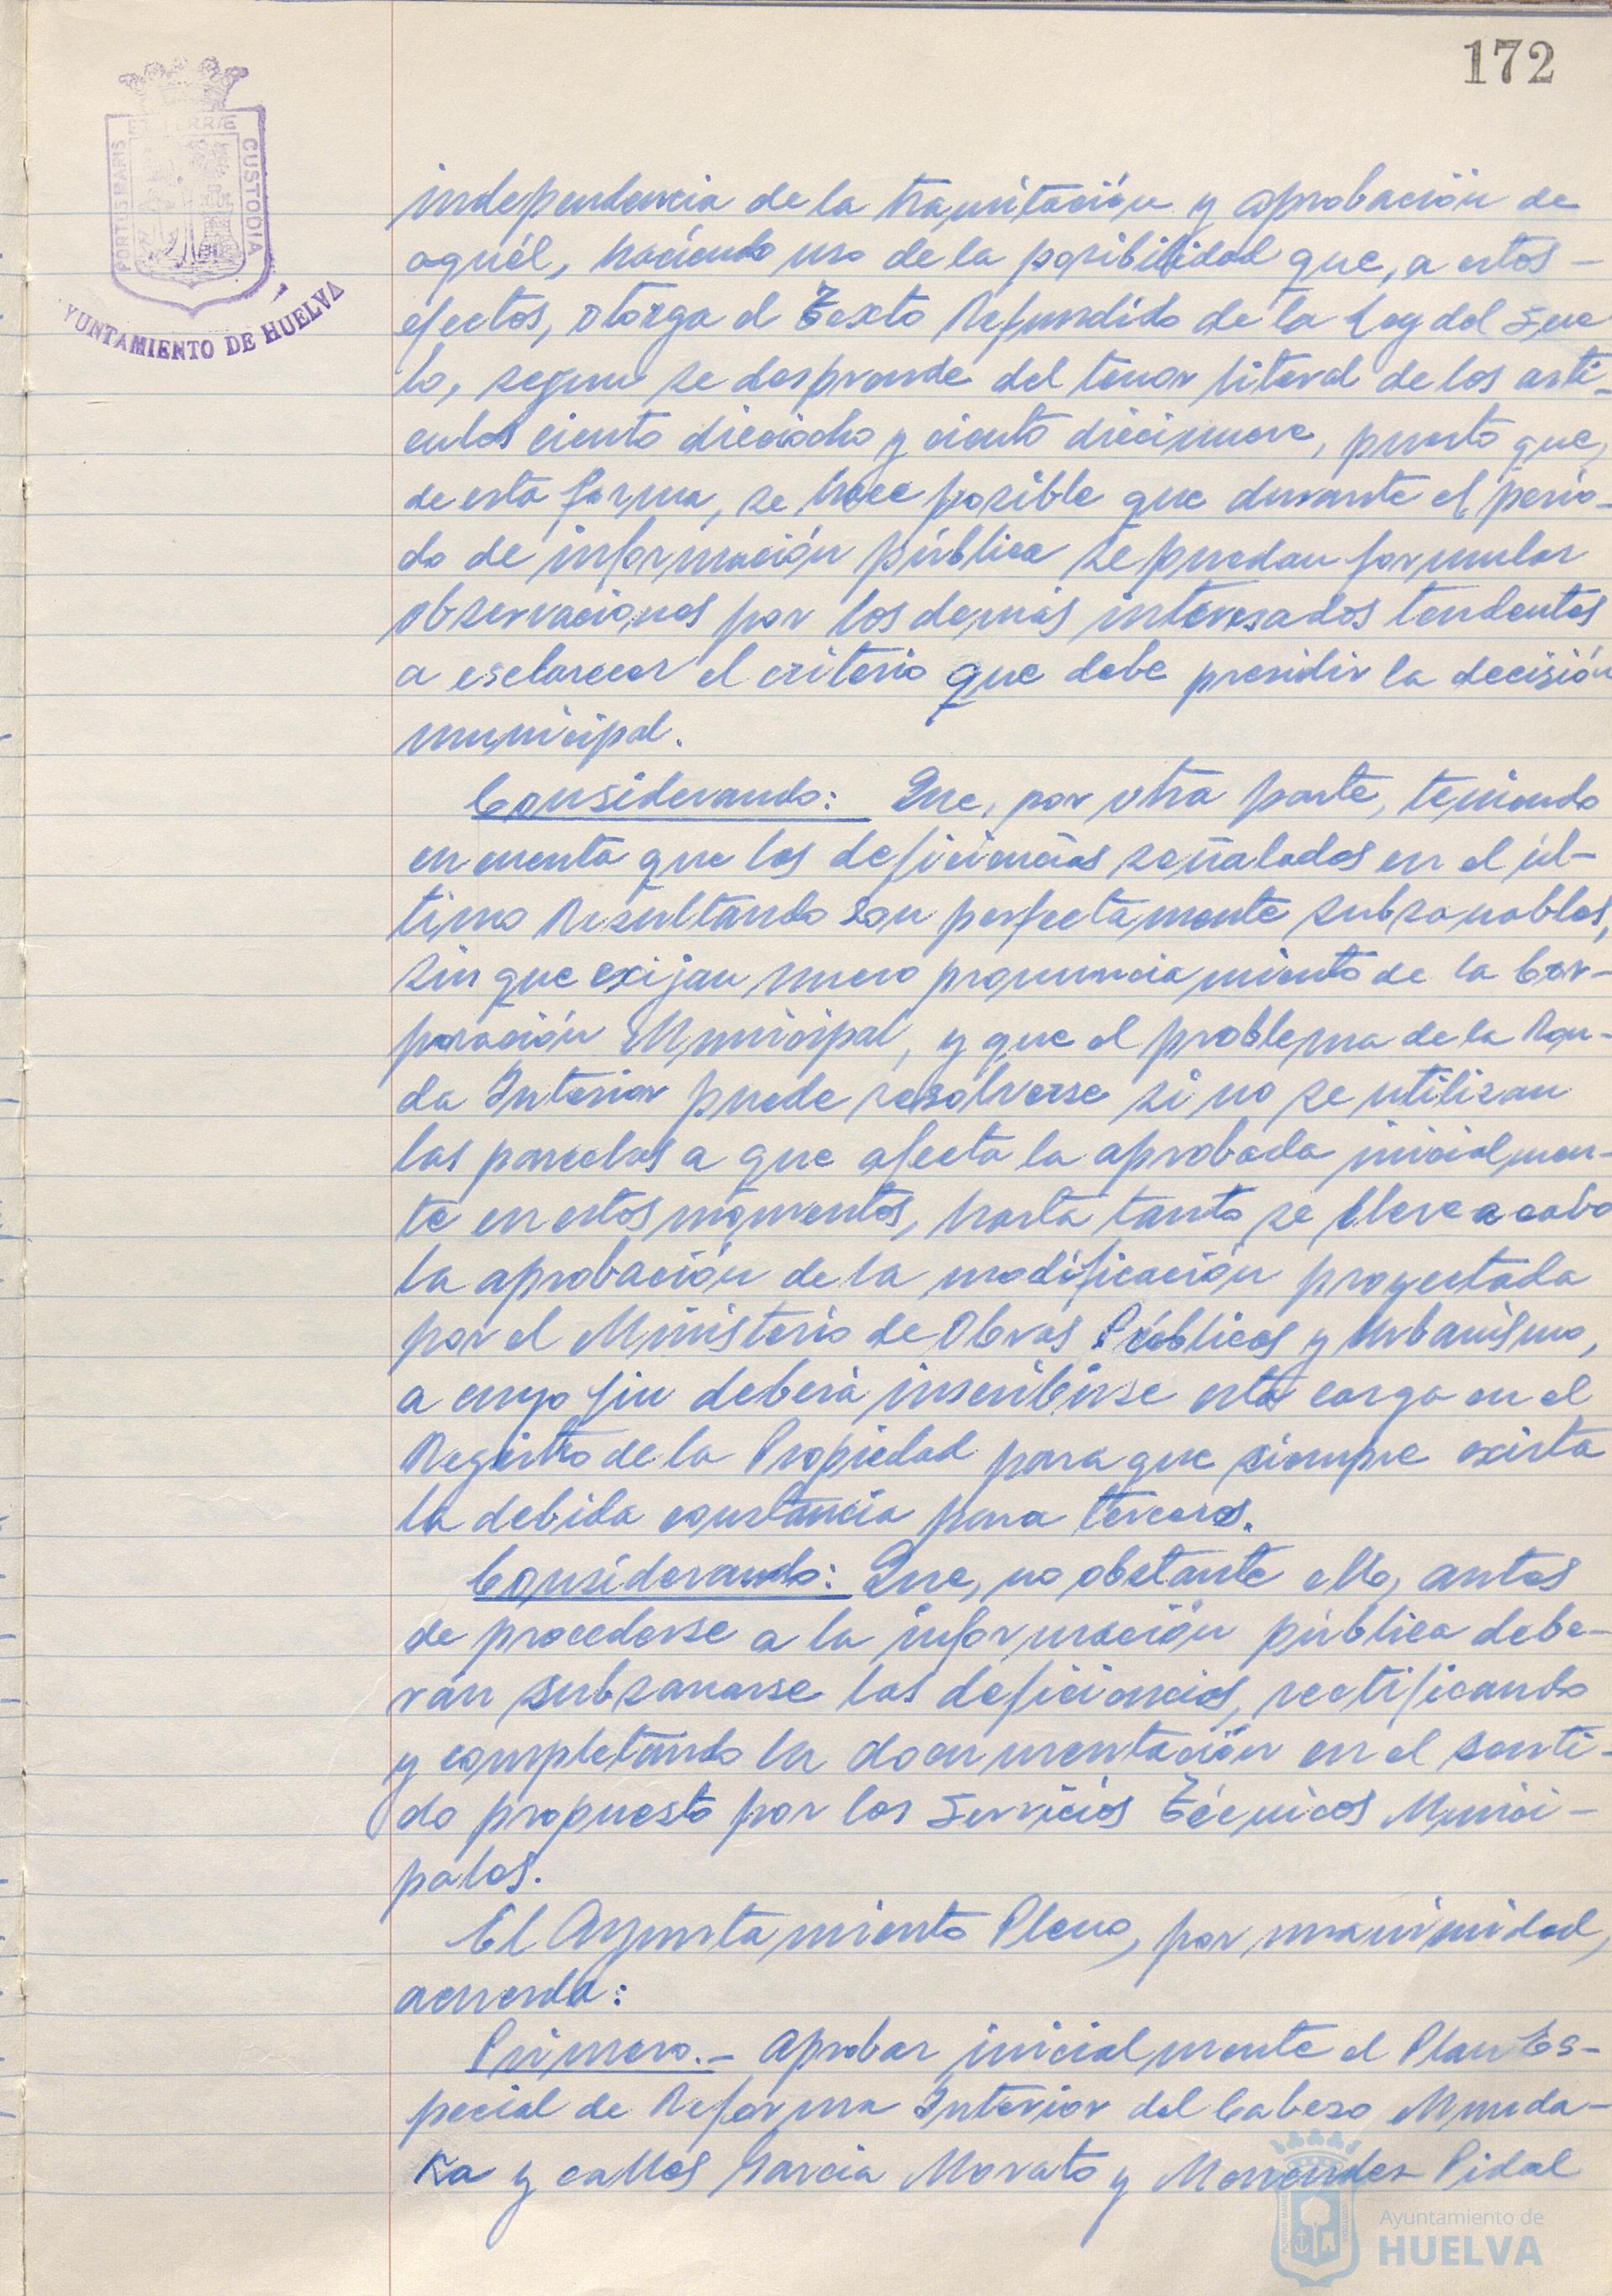 172
PORTUS MARIS ET TERRÆ CUSTODIA
AYUNTAMIENTO DE HUELVA
independencia de la tramitación y aprobación de
aquél, haciendo uso de la posibilidad que, a estos -
efectos, otorga el Texto Refundido de la Ley del Sue
lo, segun se desprende del tenor literal de los arti-
culos ciento dieciocho y ciento diecinueve, puesto que,
de esta forma, se hace posible que durante el perio-
do de información pública se puedan formular
observaciones por los demás interesados tendentes
a esclarecer el criterio que debe presidir la decisión
municipal.
Considerando: Que, por otra parte, teniendo
en cuenta que las deficiencias señaladas en el úl-
timo Resultando son perfectamente subsanables,
sin que exijan nuevo pronunciamiento de la Cor-
poración Municipal, y que el problema de la Ron-
da Interior puede resolverse si no se utilizan
las parcelas a que afecta la aprobada inicialmen-
te en estos momentos, hasta tanto se lleve a cabo
la aprobación de la modificación proyectada
por el Ministerio de Obras Públicas y Urbanismo,
a cuyo fin deberá inscribirse esta carga en el
Registro de la Propiedad para que siempre exista
la debida constancia para terceros.
Considerando: Que, no obstante ello, antes
de procederse a la información pública debe-
rán subsanarse las deficiencias, rectificando
y completando la documentación en el senti-
do propuesto por los Servicios Técnicos Munici-
pales.
El Ayuntamiento Pleno, por unanimidad,
acuerda:
Primero.- Aprobar inicialmente el Plan Es-
pecial de Reforma Interior del Cabezo Munda-
ka y calles Garcia Morato y Menendez Pidal
Ayuntamiento de
HUELVA